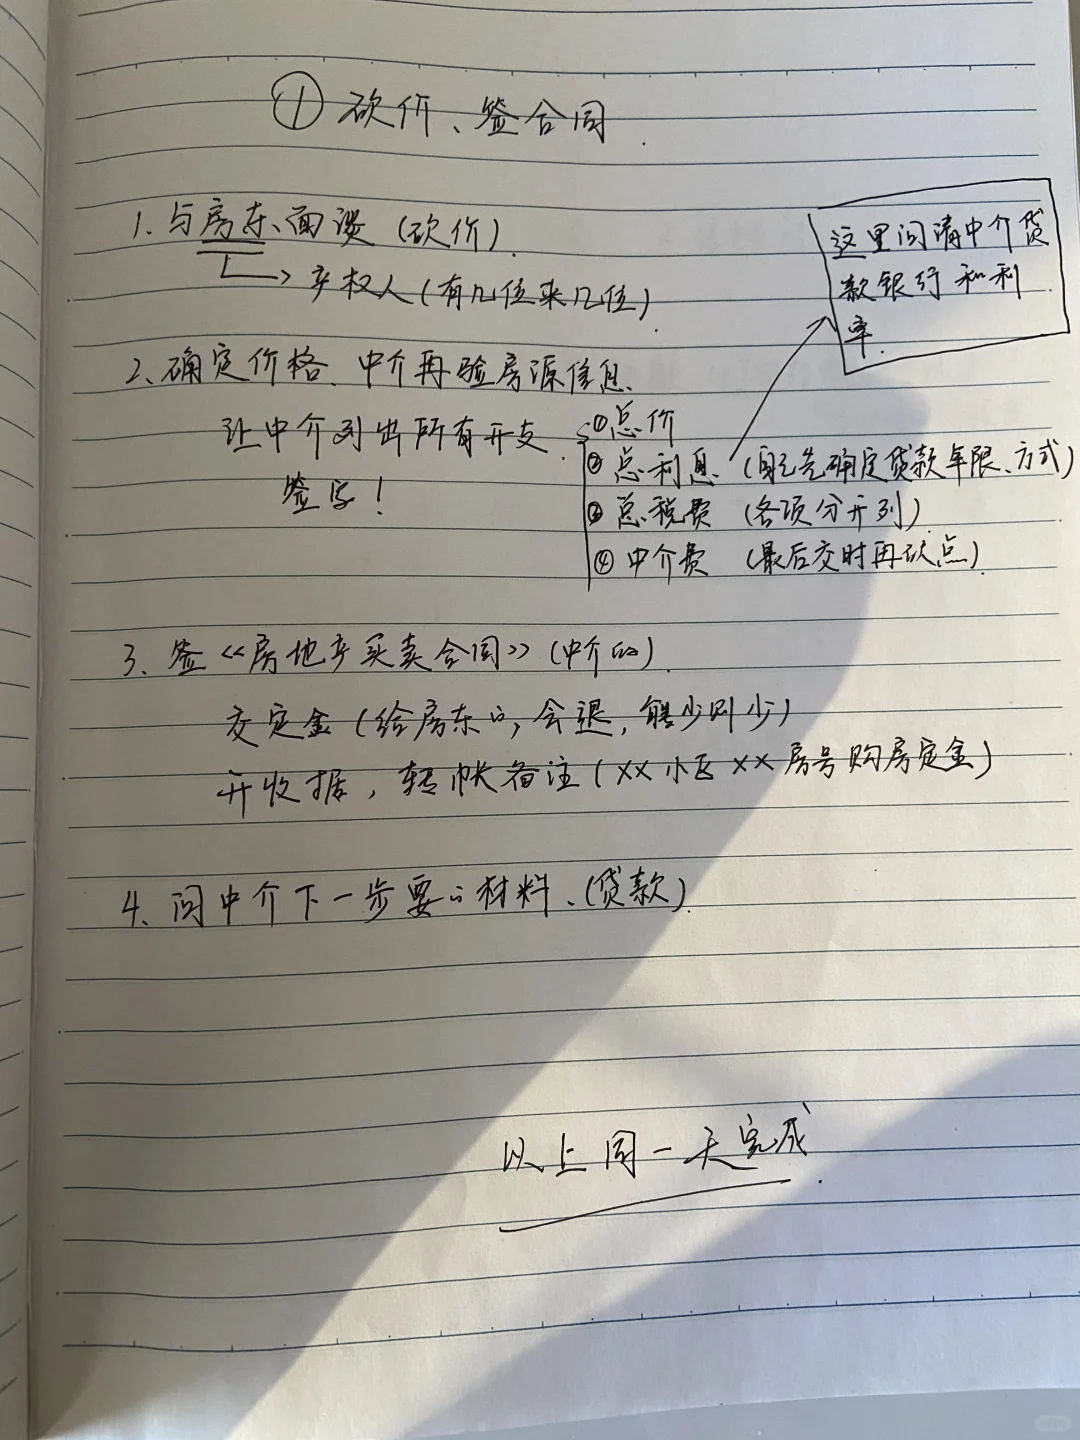 ① 砍价、签合同.
1. 与房东、面谈 (砍价).
→ 产权人 (有几位来几位).
这里问清中介贷
款银行和利
率.
2、确定价格、中介再验房源信息.
让中介列出所有开支.
签字!
①总价
②总利息 (自己先确定贷款年限、方式)
③总税费 (各项分开列)
④中介费 (最后交时再砍点).
3、签《房地产买卖合同》(中介的).
交定金 (给房东的, 会退, 能少则少)
开收据, 转帐备注 (XX小区XX房号购房定金)
4、问中介下一步要的材料、(贷款).
以上同一天完成.